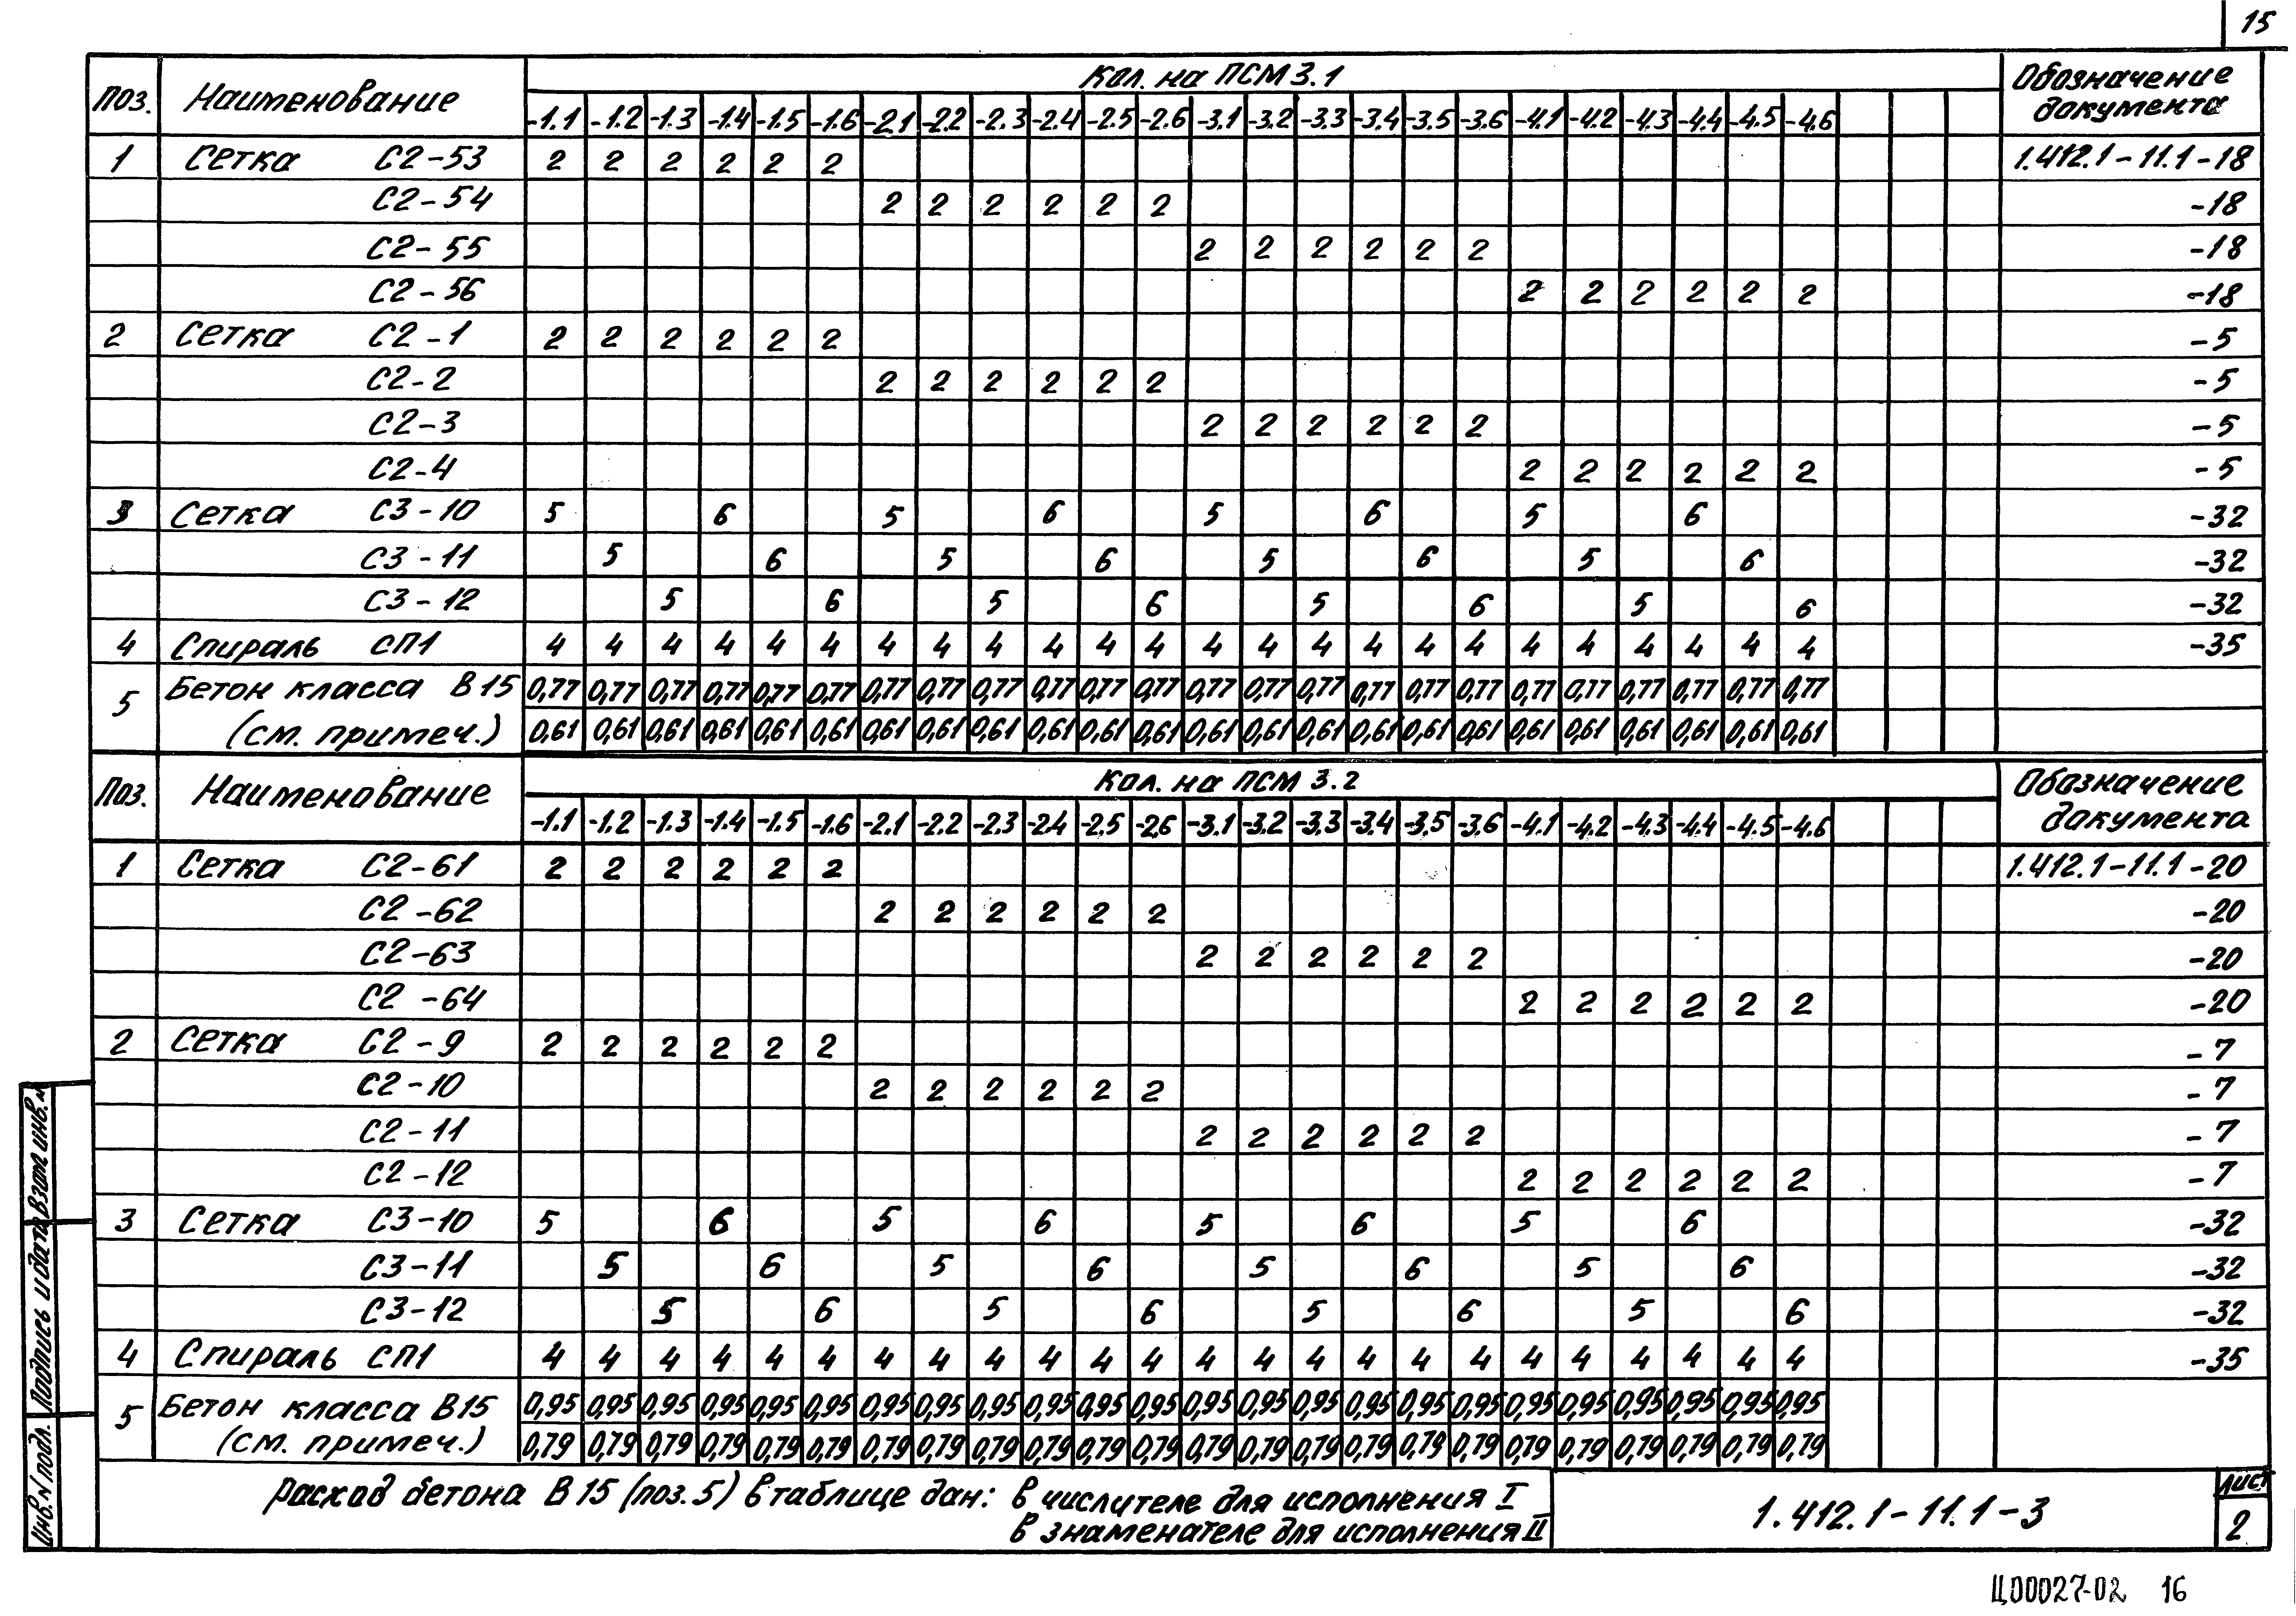 15
Поз. Наименование Кол. на ПСМ 3.1 Обозначение документа
-1.1 -1.2 -1.3 -1.4 -1.5 -1.6 -2.1 -2.2 -2.3 -2.4 -2.5 -2.6 -3.1 -3.2 -3.3 -3.4 -3.5 -3.6 -4.1 -4.2 -4.3 -4.4 -4.5 -4.6
1 Сетка С2-53 2 2 2 2 2 2 1.412.1-11.1-18
С2-54 2 2 2 2 2 2 -18
С2-55 2 2 2 2 2 2 -18
С2-56 2 2 2 2 2 2 -18
2 Сетка С2-1 2 2 2 2 2 2 -5
С2-2 2 2 2 2 2 2 -5
С2-3 2 2 2 2 2 2 -5
С2-4 2 2 2 2 2 2 -5
3 Сетка С3-10 5 6 5 6 5 6 5 6 -32
С3-11 5 6 5 6 5 6 5 6 -32
С3-12 5 6 5 6 5 6 5 6 -32
4 Спираль СП1 4 4 4 4 4 4 4 4 4 4 4 4 4 4 4 4 4 4 4 4 4 4 4 4 -35
5 Бетон класса В15 0,77 0,77 0,77 0,77 0,77 0,77 0,77 0,77 0,77 0,77 0,77 0,77 0,77 0,77 0,77 0,77 0,77 0,77 0,77 0,77 0,77 0,77 0,77 0,77
(см. примеч.) 0,61 0,61 0,61 0,61 0,61 0,61 0,61 0,61 0,61 0,61 0,61 0,61 0,61 0,61 0,61 0,61 0,61 0,61 0,61 0,61 0,61 0,61 0,61 0,61
Поз. Наименование Кол. на ПСМ 3.2 Обозначение документа
-1.1 -1.2 -1.3 -1.4 -1.5 -1.6 -2.1 -2.2 -2.3 -2.4 -2.5 -2.6 -3.1 -3.2 -3.3 -3.4 -3.5 -3.6 -4.1 -4.2 -4.3 -4.4 -4.5 -4.6
1 Сетка С2-61 2 2 2 2 2 2 1.412.1-11.1-20
С2-62 2 2 2 2 2 2 -20
С2-63 2 2 2 2 2 2 -20
С2-64 2 2 2 2 2 2 -20
2 Сетка С2-9 2 2 2 2 2 2 -7
С2-10 2 2 2 2 2 2 -7
С2-11 2 2 2 2 2 2 -7
С2-12 2 2 2 2 2 2 -7
3 Сетка С3-10 5 6 5 6 5 6 5 6 -32
С3-11 5 6 5 6 5 6 5 6 -32
С3-12 5 6 5 6 5 6 5 6 -32
4 Спираль СП1 4 4 4 4 4 4 4 4 4 4 4 4 4 4 4 4 4 4 4 4 4 4 4 4 -35
5 Бетон класса В15 0,95 0,95 0,95 0,95 0,95 0,95 0,95 0,95 0,95 0,95 0,95 0,95 0,95 0,95 0,95 0,95 0,95 0,95 0,95 0,95 0,95 0,95 0,95 0,95
(см. примеч.) 0,79 0,79 0,79 0,79 0,79 0,79 0,79 0,79 0,79 0,79 0,79 0,79 0,79 0,79 0,79 0,79 0,79 0,79 0,79 0,79 0,79 0,79 0,79 0,79
Расход бетона В15 (поз. 5) в таблице дан: в числителе для исполнения I
в знаменателе для исполнения II
1.412.1-11.1-3
Лист
2
Инв. N подл. Подпись и дата Взам. инв. N
Ц00027-02 16